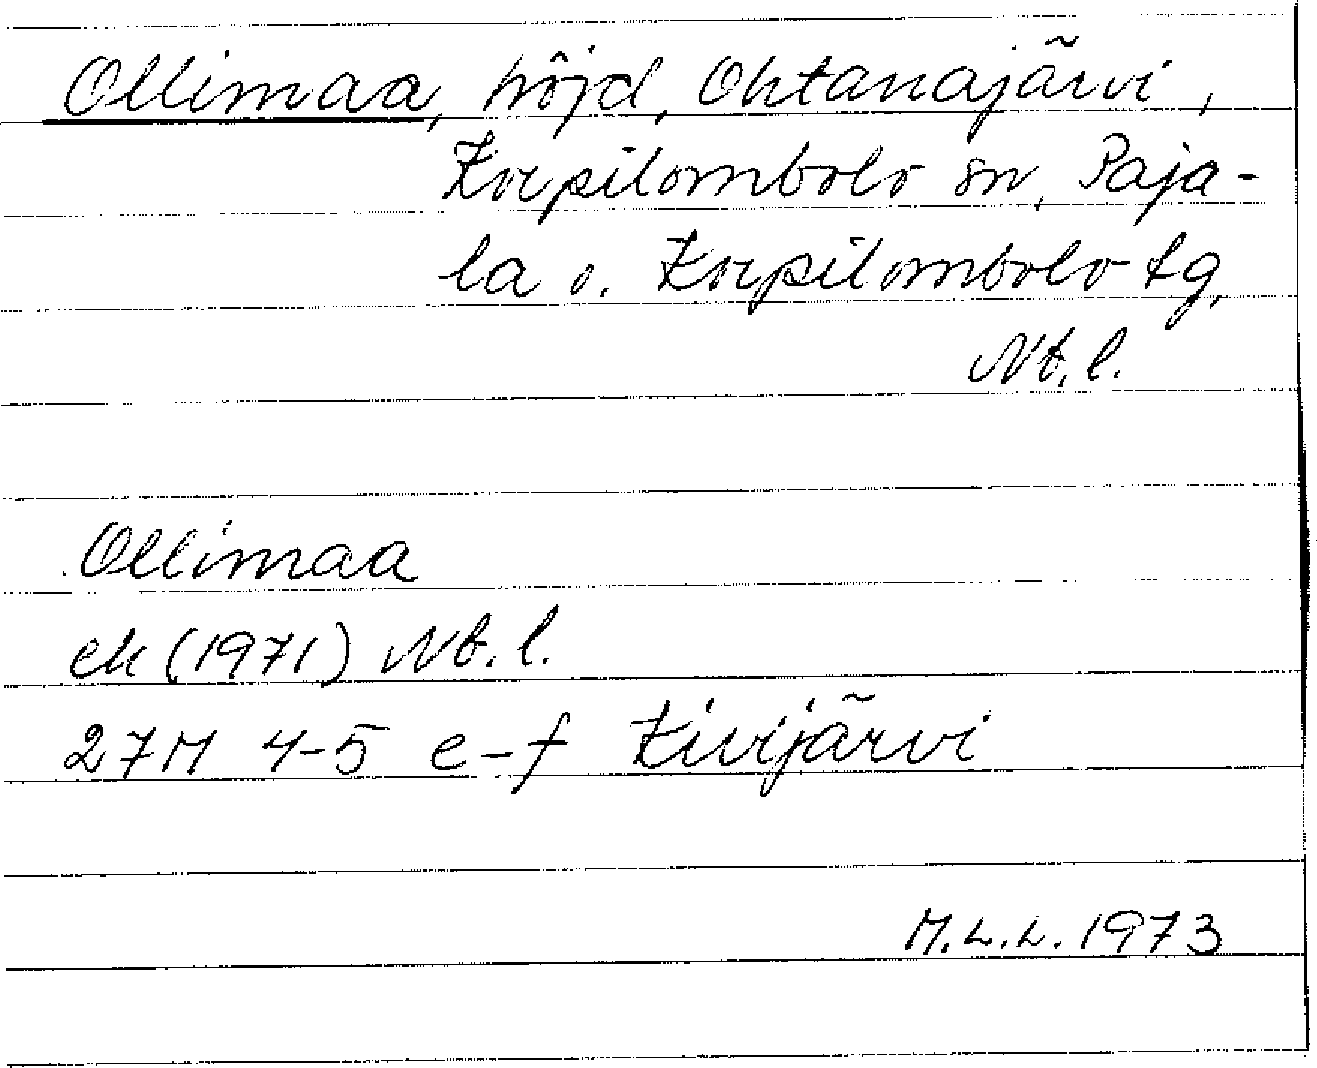 Ollimaa, höjd, Ohtanajärvi,
Korpilombolo sn, Paja-
la o. Korpilombolo tg,
Nb.l.
Ollimaa
ek (1971) Nb.l.
27M 4-5 e-f Kivijärvi
M.L.L. 1973